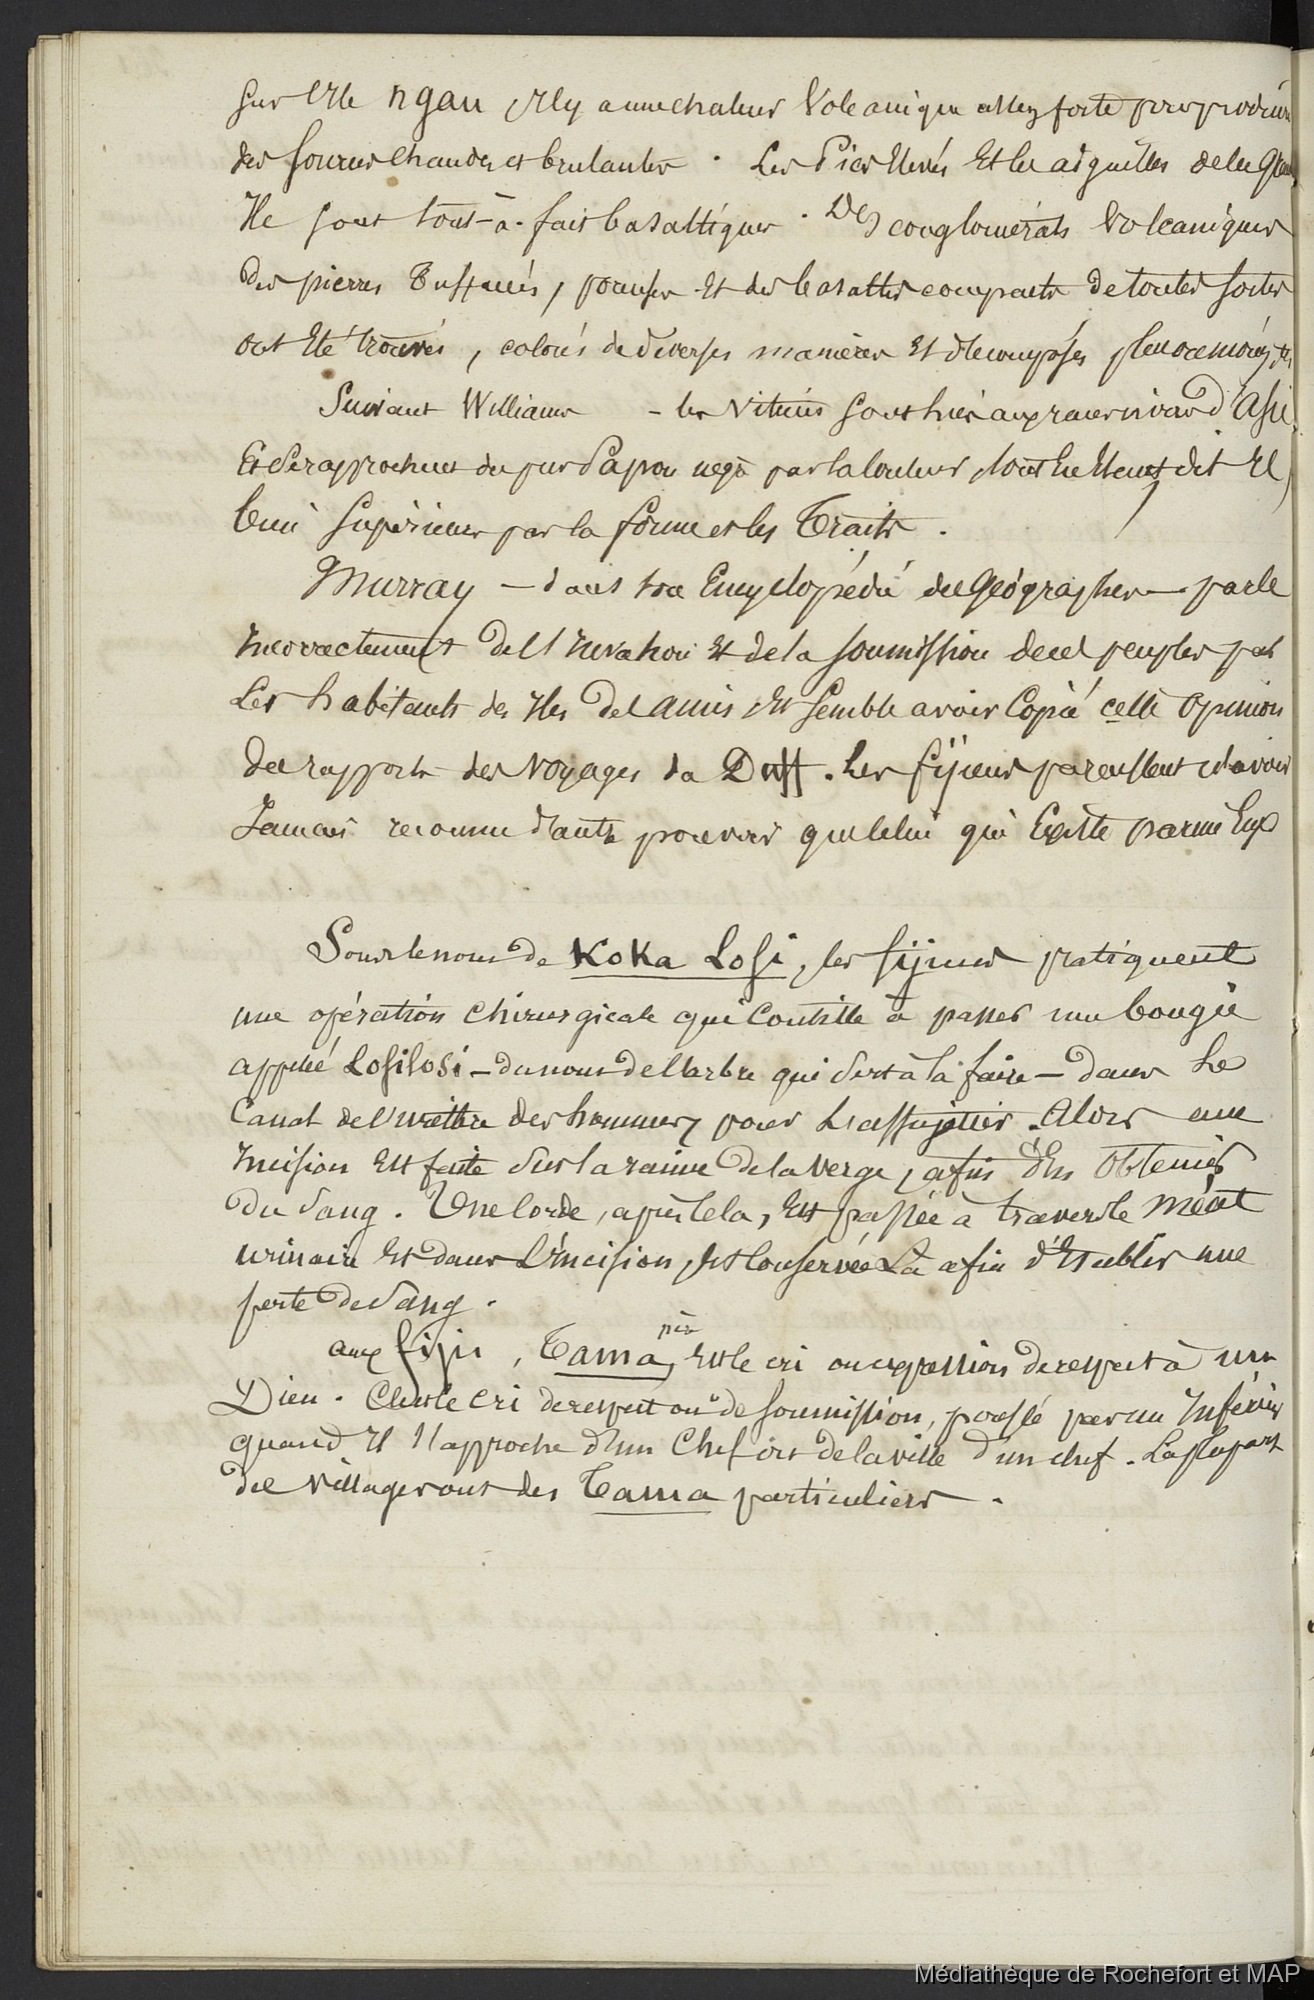 Sur l'Ile ngau, Il y a une chaleur Volcanique assez forte pour produire
des sources chaudes et brulantes. Les Pics Elevés Et les aiguilles de la Grande
Ile sont tout-à-fait basaltiques. Des conglomérats Volcaniques
Des pierres tuffacés, poreuses Et des basaltes compacts de toutes sortes
ont Eté trouvés, colorés de diverses manières Et décomposés
Suivant Williams - les Vitiens sont liés aux races noires d'Asie,
Et se rapprochent du pur Papou nego par la couleur, tout en Etant, dit Il,
bien supérieurs par la forme et les Traits.
Murray - dans son Encyclopédie de Géographie - parle
Incorrectement de l'Invasion Et de la soumission de ces peuples par
Les habitants des Iles des amis, Et semble avoir Copié cette Opinion
des rapports des Voyages du Duff. Les fijiens paraissent n'avoir
Jamais reconnu d'autre pouvoir que celui qui Existe parmi Eux
Sous le nom de Koka Losi, les fijiens pratiquent
une opération chirurgicale qui Consiste à passer une bougie
appelé Losilosi - du nom de l'arbre qui sert à la faire - dans Le
Canal de l'urèthre des hommes, pour L'assujettir. Alors une
Incision Est faite sur la racine de la Verge, afin d'En Obtenir
du sang. Une corde, après cela, Est passée à travers le Méat
urinaire Et dans L'Incision, Et Conservée Là afin d'Etablir une
perte de sang.
père
aux fijis, Tama, Est le cri ou expression de respect à un
Dieu. C'est le cri de respect ou de soumission, poussé par un Inférieur
quand Il s'approche d'un Chef ou de la ville d'un chef. La plupart
des villages ont des Tama particuliers.
Médiathèque de Rochefort et MAP